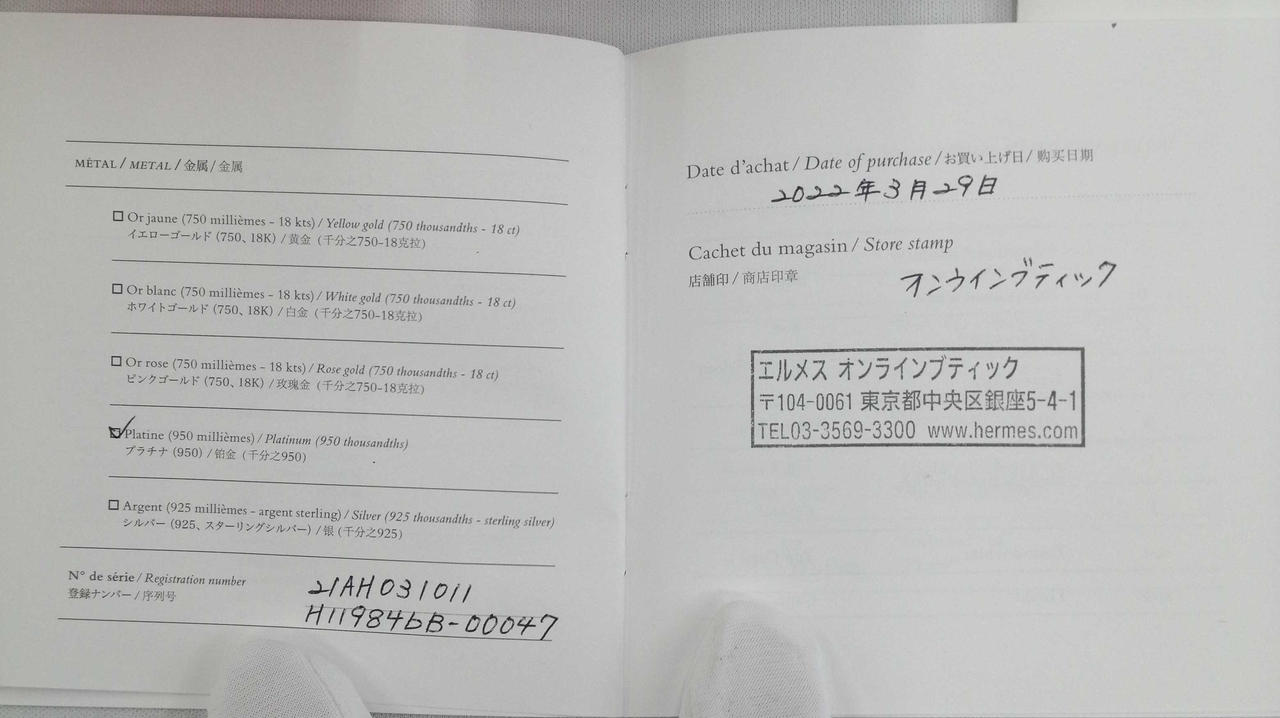 MÉTAL / METAL / 金属 / 金属
Or jaune (750 millièmes - 18 kts) / Yellow gold (750 thousandths - 18 ct)
イエローゴールド (750、18K) / 黄金 (千分之750-18克拉)
Or blanc (750 millièmes - 18 kts) / White gold (750 thousandths - 18 ct)
ホワイトゴールド (750、18K) / 白金 (千分之750-18克拉)
Or rose (750 millièmes - 18 kts) / Rose gold (750 thousandths - 18 ct)
ピンクゴールド (750、18K) / 玫瑰金 (千分之750-18克拉)
Platine (950 millièmes) / Platinum (950 thousandths)
プラチナ (950) / 铂金 (千分之950)
Argent (925 millièmes - argent sterling) / Silver (925 thousandths - sterling silver)
シルバー (925、スターリングシルバー) / 银 (千分之925)
N° de série / Registration number
登録ナンバー / 序列号
21AH031011
H119846B-00047
Date d'achat / Date of purchase / お買い上げ日 / 购买日期
2022年3月29日
Cachet du magasin / Store stamp
店舗印 / 商店印章
オンラインブティック
エルメス オンラインブティック
〒104-0061 東京都中央区銀座5-4-1
TEL03-3569-3300 www.hermes.com